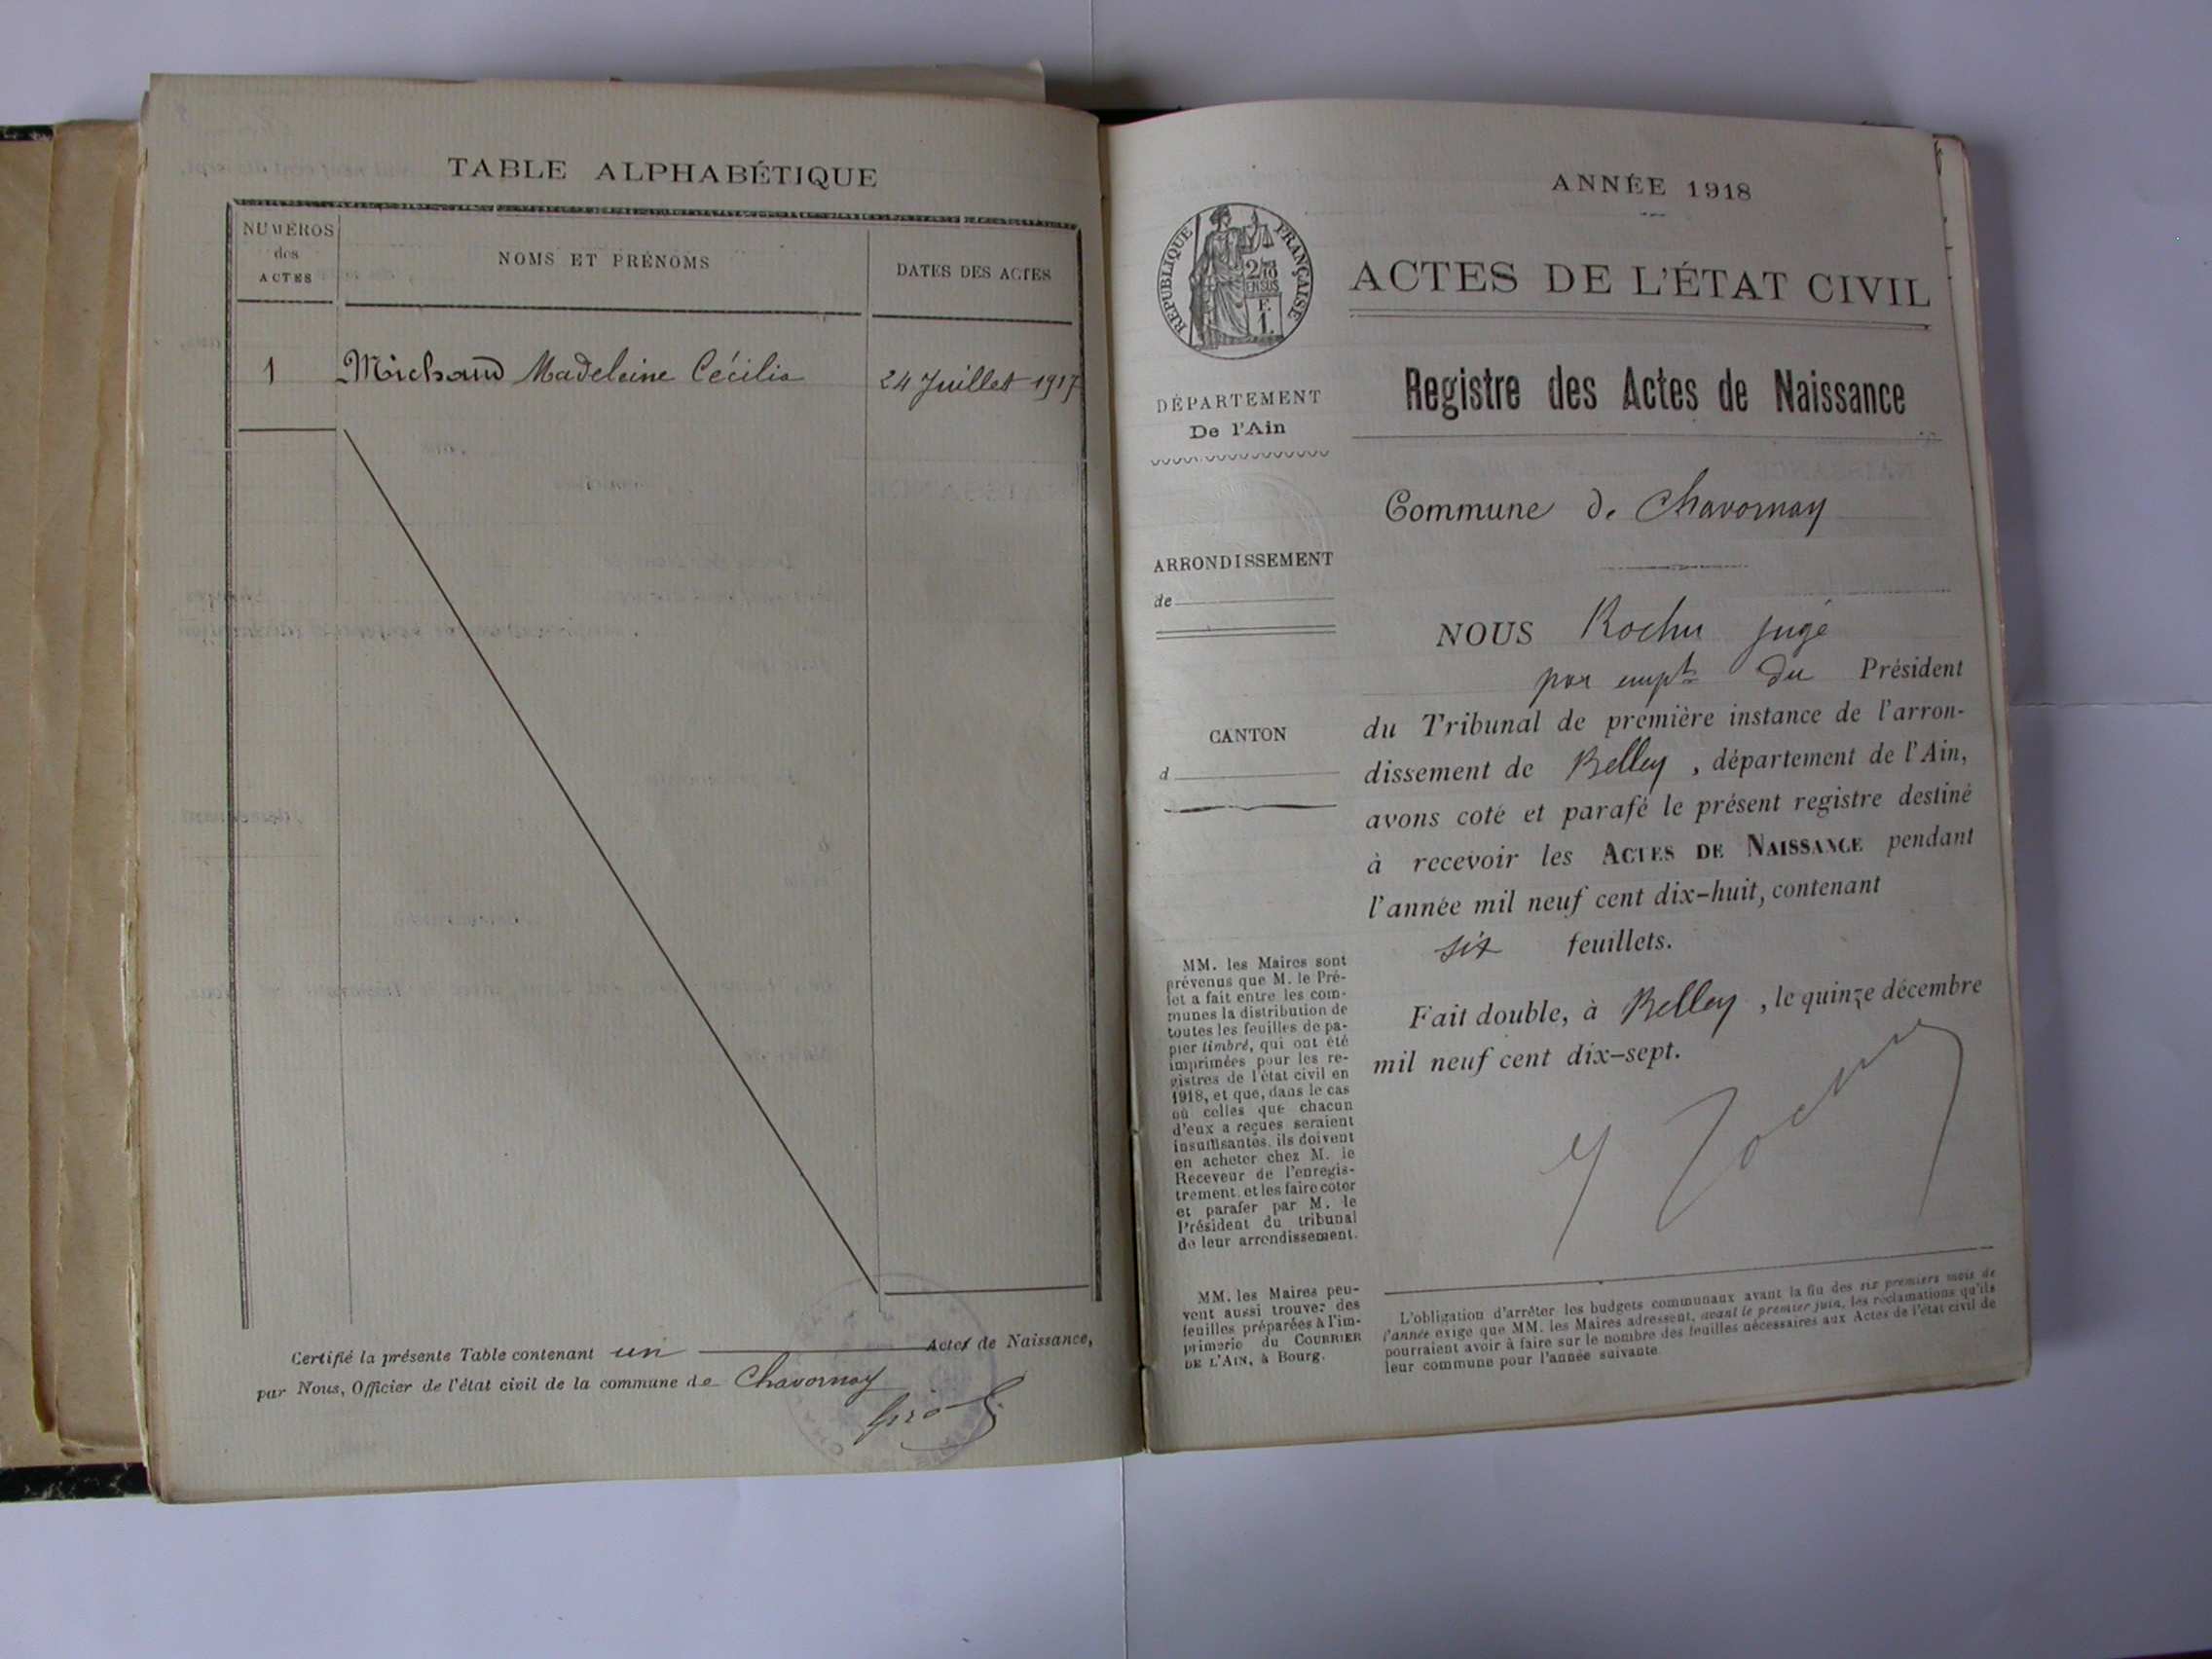 TABLE ALPHABÉTIQUE
NUMÉROS
des
ACTES
NOMS ET PRÉNOMS
DATES DES ACTES
1 Michaud Madeleine Cécilia 24 Juillet 1917
Certifié la présente Table contenant un Actes de Naissance,
par Nous, Officier de l'état civil de la commune de Chavornay
ANNÉE 1918
RÉPUBLIQUE FRANÇAISE
2/10
EN SUS
F.
1.
ACTES DE L'ÉTAT CIVIL
Registre des Actes de Naissance
DÉPARTEMENT
De l'Ain
Commune de Chavornay
ARRONDISSEMENT
de
CANTON
d
NOUS Rochu juge
par empt du Président
du Tribunal de première instance de l'arron-
dissement de Belley, département de l'Ain,
avons coté et parafé le présent registre destiné
à recevoir les ACTES DE NAISSANCE pendant
l'année mil neuf cent dix-huit, contenant
six feuillets.
Fait double, à Belley, le quinze décembre
mil neuf cent dix-sept.
MM. les Maires sont
prévenus que M. le Pré-
fet a fait entre les com-
munes la distribution de
toutes les feuilles de pa-
pier timbré, qui ont été
imprimées pour les re-
gistres de l'état civil en
1918, et que, dans le cas
où celles que chacun
d'eux a reçues seraient
insuffisantes, ils doivent
en acheter chez M. le
Receveur de l'enregis-
trement, et les faire coter
et parafer par M. le
Président du tribunal
de leur arrondissement.
MM. les Maires peu-
vent aussi trouver des
feuilles préparées à l'im-
primerie du COURRIER
DE L'AIN, à Bourg.
L'obligation d'arrêter les budgets communaux avant la fin des six premiers mois de
l'année exige que MM. les Maires adressent, avant le premier juin, les réclamations qu'ils
pourraient avoir à faire sur le nombre des feuilles nécessaires aux Actes de l'état civil de
leur commune pour l'année suivante.